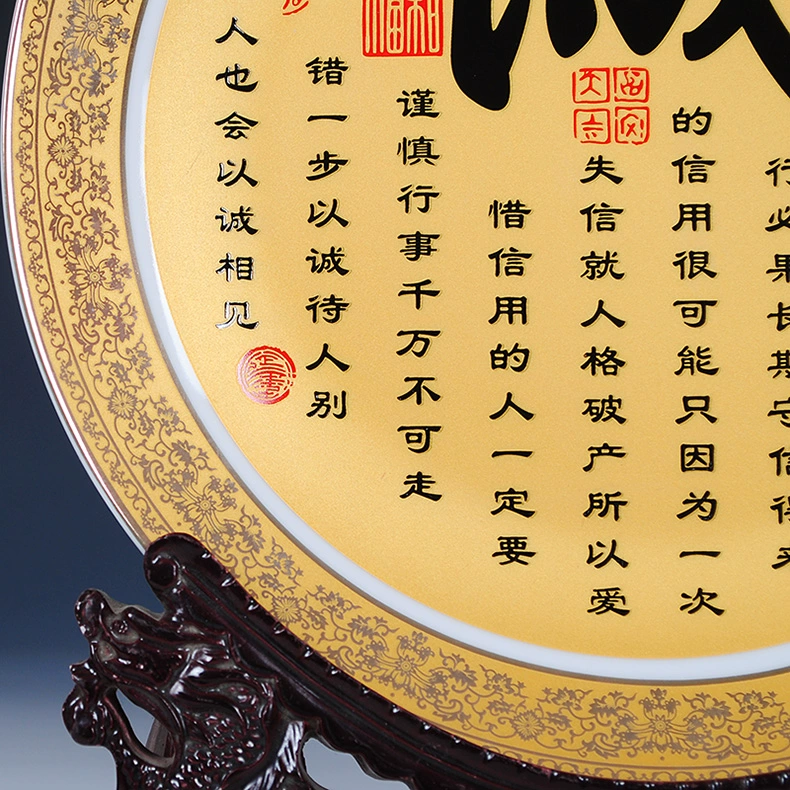 行必果长期守信得来
的信用很可能只因为一次
失信就人格破产所以爱
惜信用的人一定要
谨慎行事千万不可走
错一步以诚待人别
人也会以诚相见